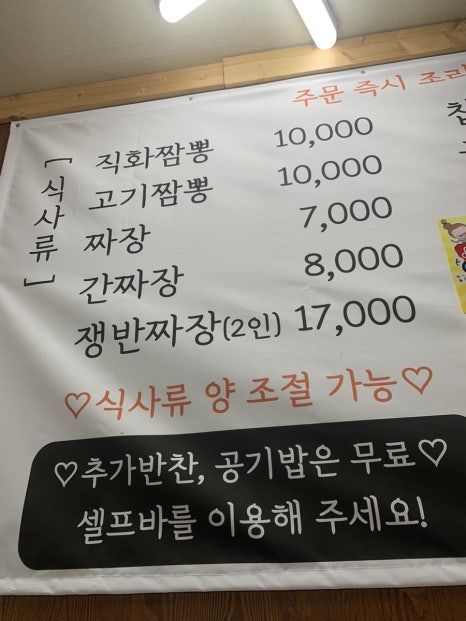 주문 즉시 조리
[식사류]
직화짬뽕 10,000
고기짬뽕 10,000
짜장 7,000
간짜장 8,000
쟁반짜장(2인) 17,000
♡식사류 양 조절 가능♡
♡추가반찬, 공기밥은 무료♡
셀프바를 이용해 주세요!